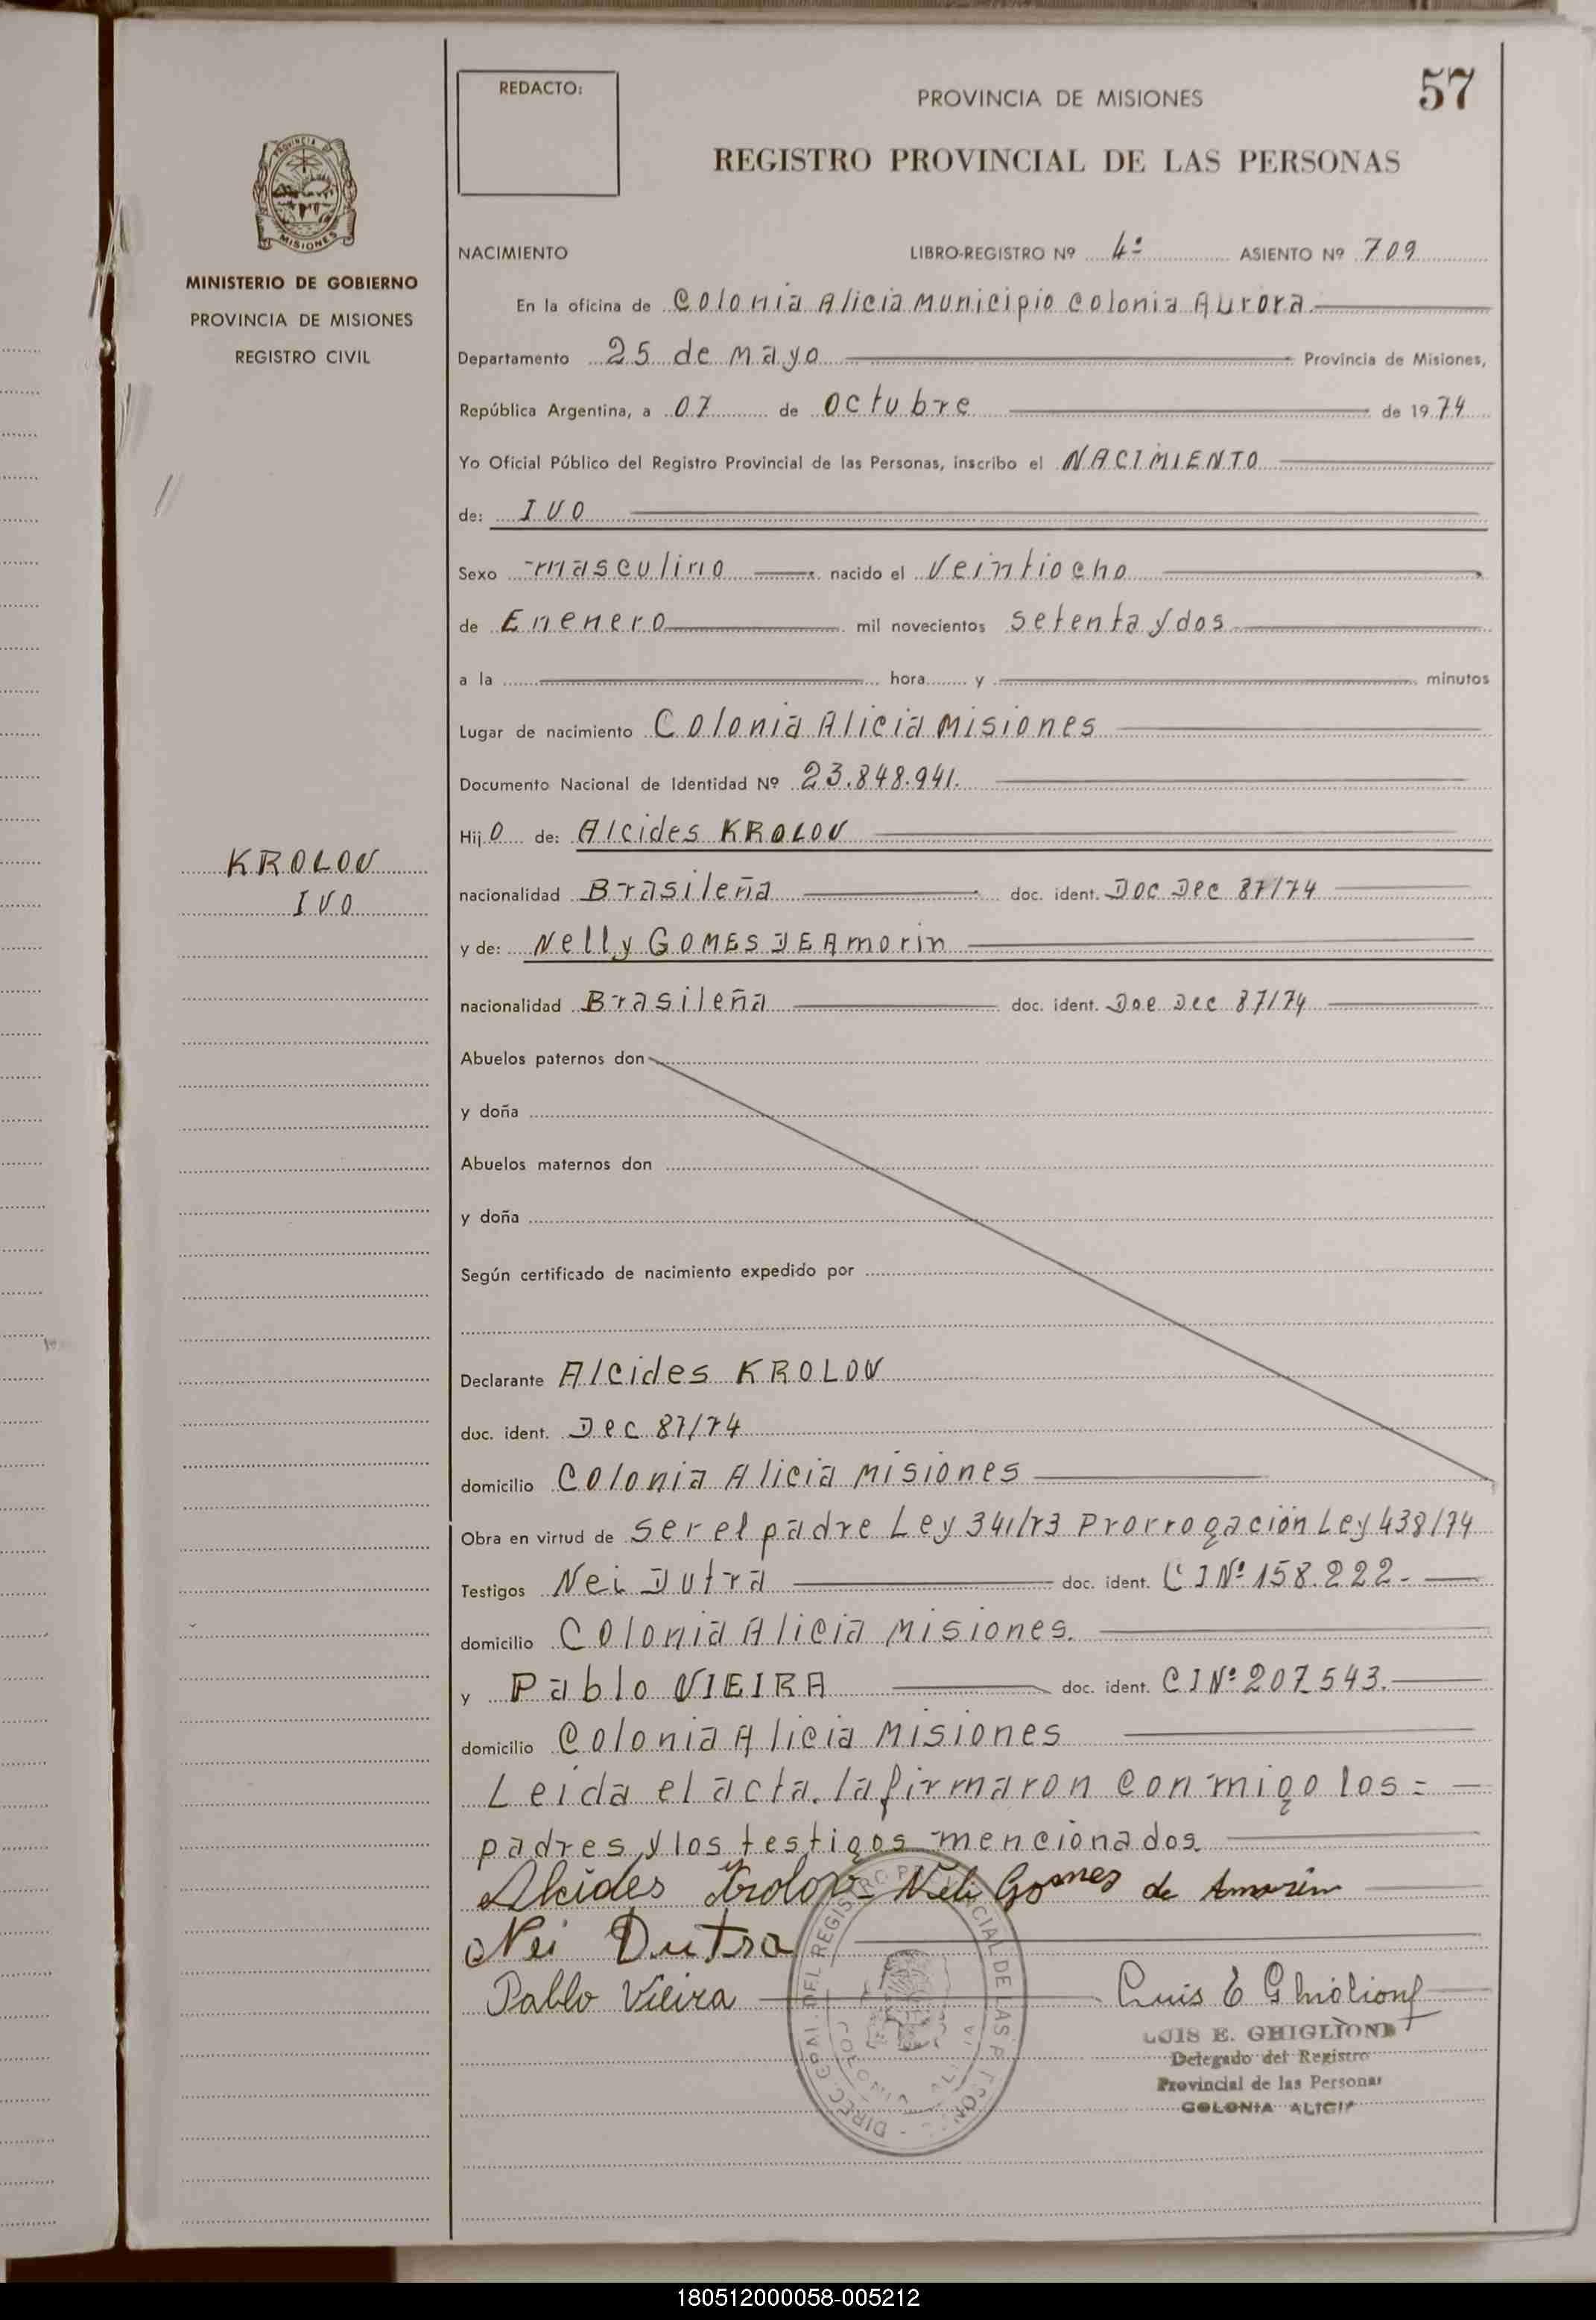 REDACTO:
PROVINCIA DE MISIONES
57
REGISTRO PROVINCIAL DE LAS PERSONAS
PROVINCIA DE
MISIONES
MINISTERIO DE GOBIERNO
PROVINCIA DE MISIONES
REGISTRO CIVIL
NACIMIENTO LIBRO-REGISTRO Nº 4º ASIENTO Nº 709
En la oficina de Colonia Alicia Municipio Colonia Aurora
Departamento 25 de Mayo Provincia de Misiones,
República Argentina, a 07 de Octubre de 1974
Yo Oficial Público del Registro Provincial de las Personas, inscribo el NACIMIENTO
de: IVO
Sexo masculino nacido el Veintiocho
de Enenero mil novecientos setenta y dos
a la hora y minutos
Lugar de nacimiento Colonia Alicia Misiones
Documento Nacional de Identidad Nº 23.848.941.
Hijo de: Alcides KROLOV
KROLOV
IVO
nacionalidad Brasileña doc. ident. Doc Dec 87/74
y de: Nelly GOMES DE Amorin
nacionalidad Brasileña doc. ident. Doc Dec 87/74
Abuelos paternos don
y doña
Abuelos maternos don
y doña
Según certificado de nacimiento expedido por
Declarante Alcides KROLOV
doc. ident. Dec 87/74
domicilio Colonia Alicia Misiones
Obra en virtud de ser el padre Ley 341/73 Prorrogación Ley 438/74
Testigos Nei Dutra doc. ident. CI Nº 158.222-
domicilio Colonia Alicia Misiones.
y Pablo VIEIRA doc. ident. CI Nº 207543.
domicilio Colonia Alicia Misiones
Leida el acta. la firmaron conmigo los =
padres y los testigos mencionados.
Alcides Krolov- Neli Gomes de Amorin
Nei Dutra
Pablo Vieira Luis E Ghiglione
LUIS E. GHIGLIONE
Delegado del Registro
Provincial de las Personas
COLONIA ALICIA
DIREC. GRAL. DEL REGISTRO PROVINCIAL DE LAS PERSONAS
180512000058-005212